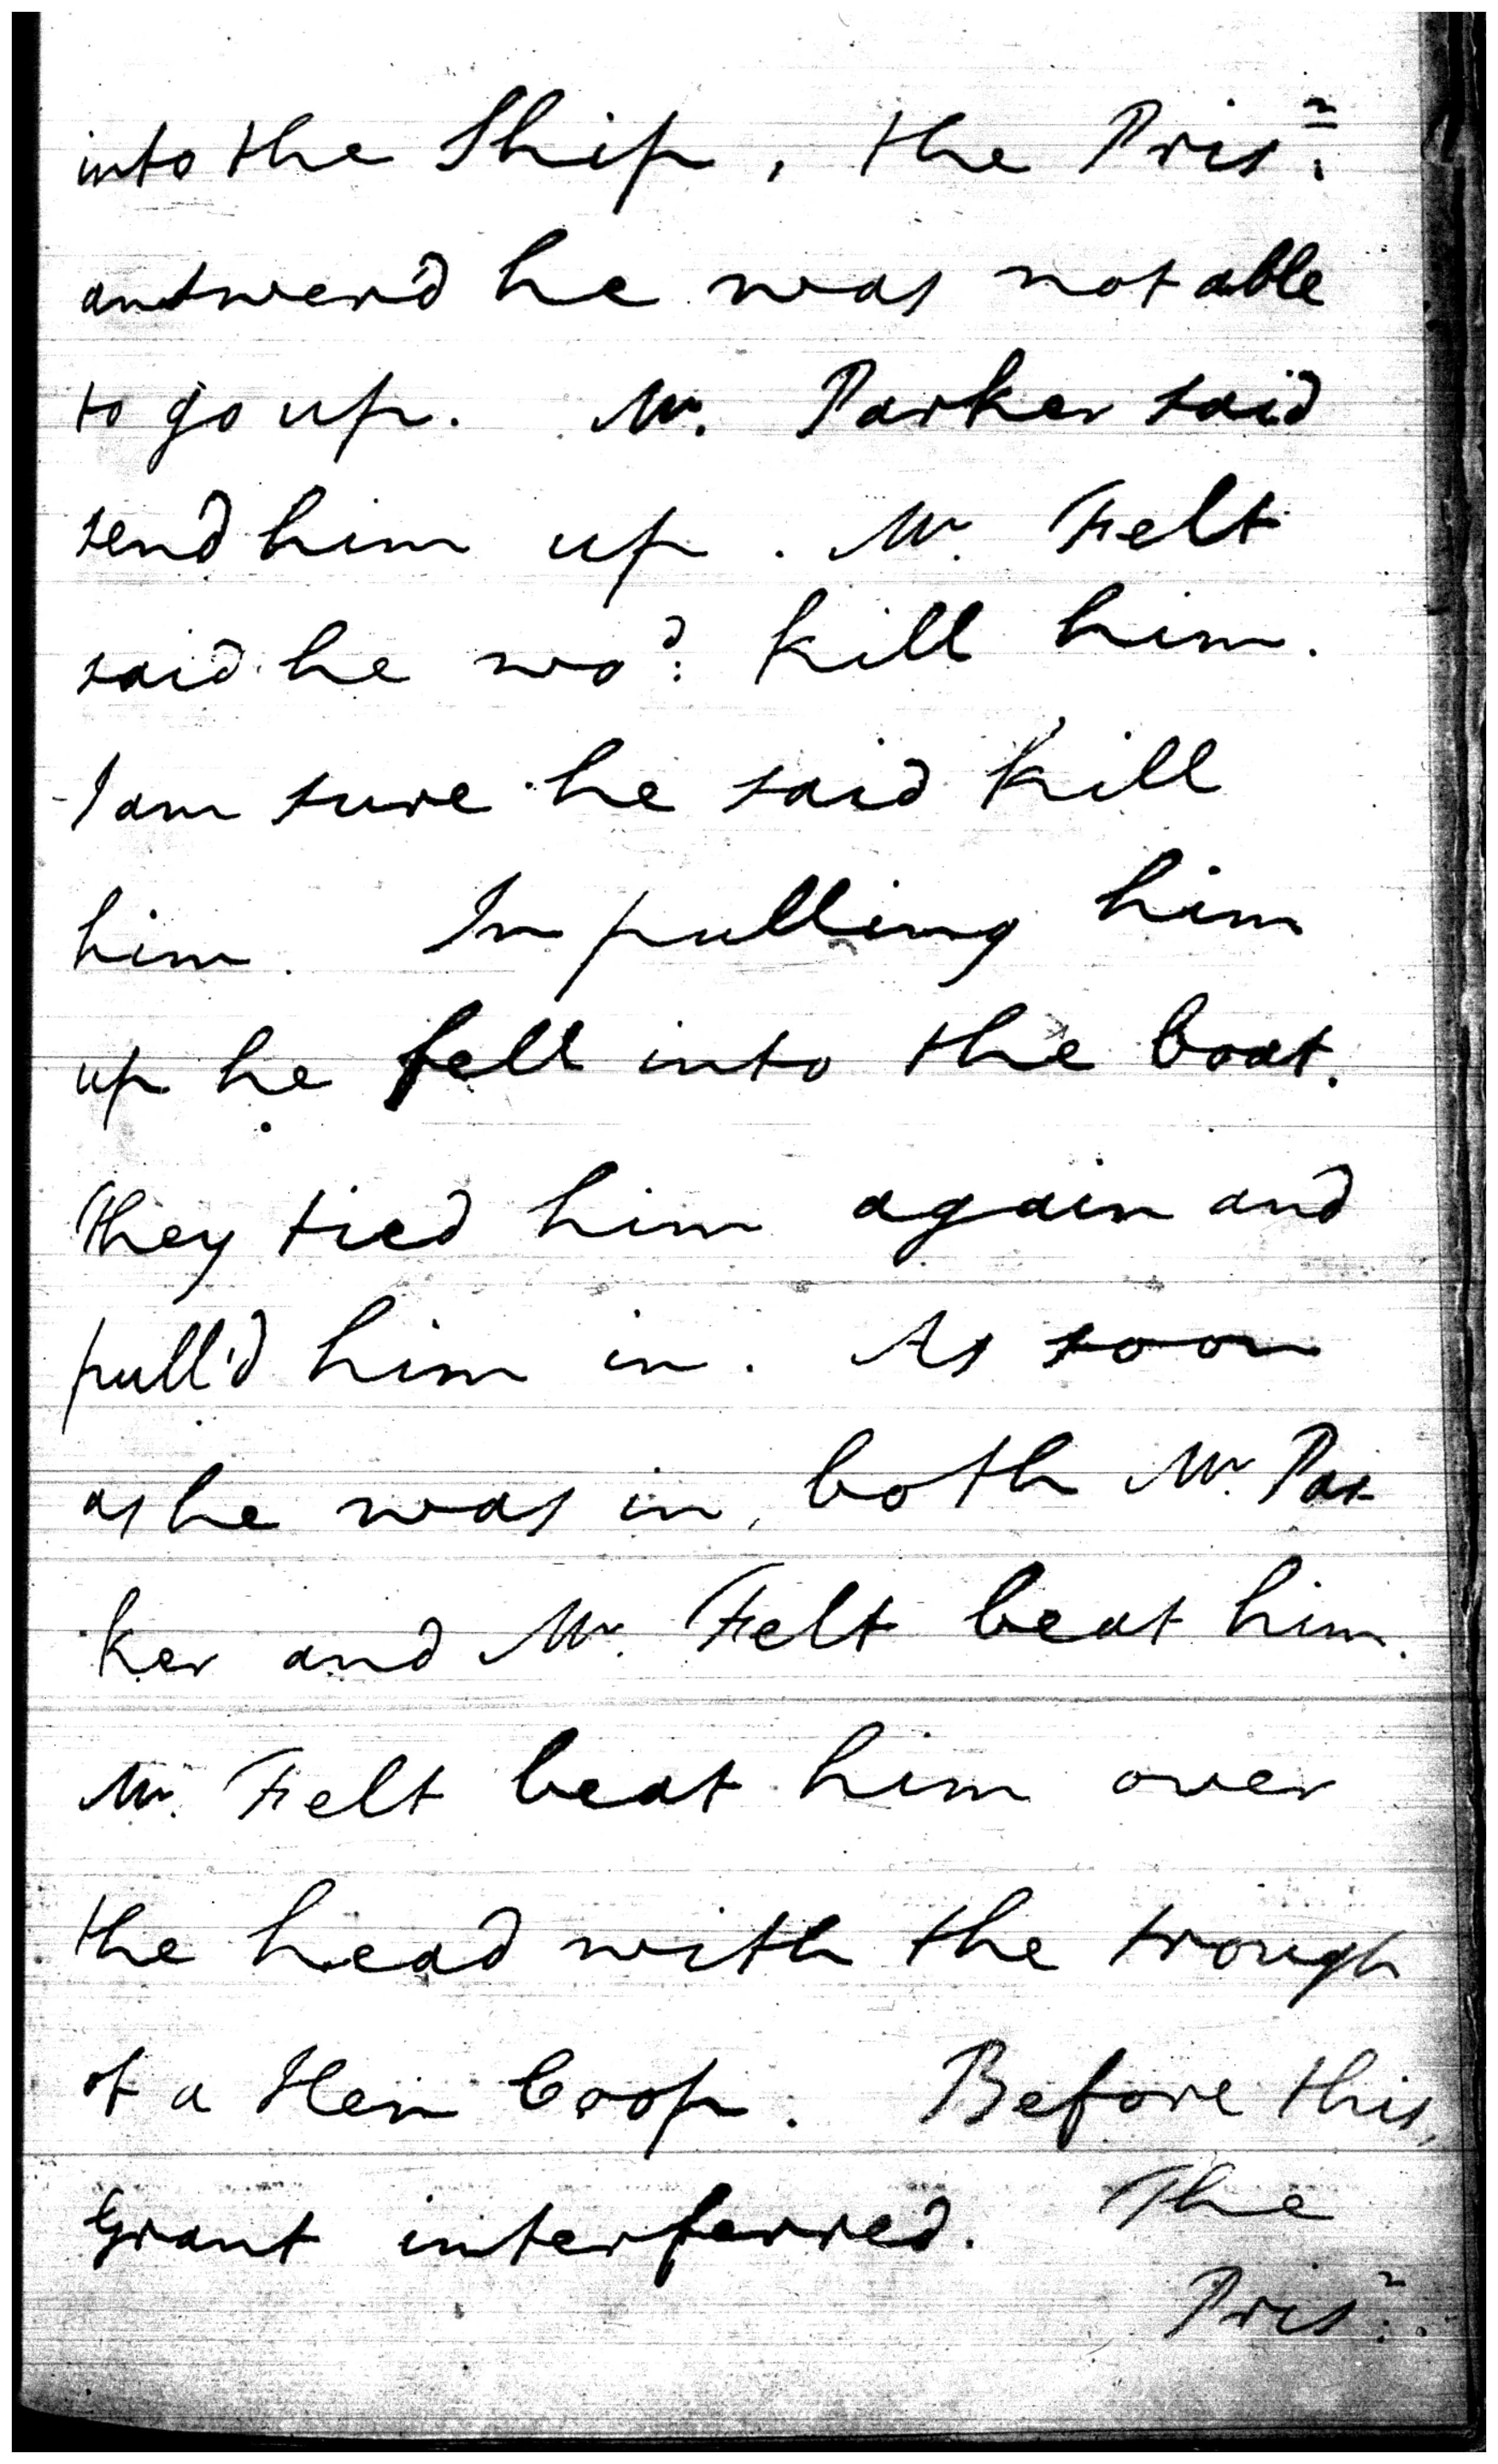 into the Ship, the Pris.^r
answer'd he was not able
to go up. Mr. Parker said
send him up. Mr. Felt
said he wo.^d kill him.
I am sure he said kill
him. In pulling him
up he fell into the boat.
They tied him again and
pull'd him in. As soon
as he was in, both Mr. Par
ker and Mr. Felt beat him.
Mr. Felt beat him over
the head with the trough
of a Hen Coop. Before this,
Grant interferred. The
Pris.^r